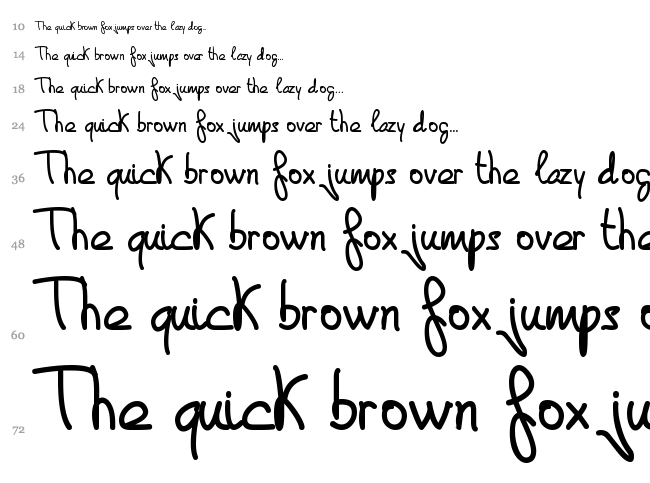 10 The quick brown fox jumps over the lazy dog...
14 The quick brown fox jumps over the lazy dog...
18 The quick brown fox jumps over the lazy dog...
24 The quick brown fox jumps over the lazy dog...
36 The quick brown fox jumps over the lazy dog
48 The quick brown fox jumps over the
60 The quick brown fox jumps o
72 The quick brown fox ju